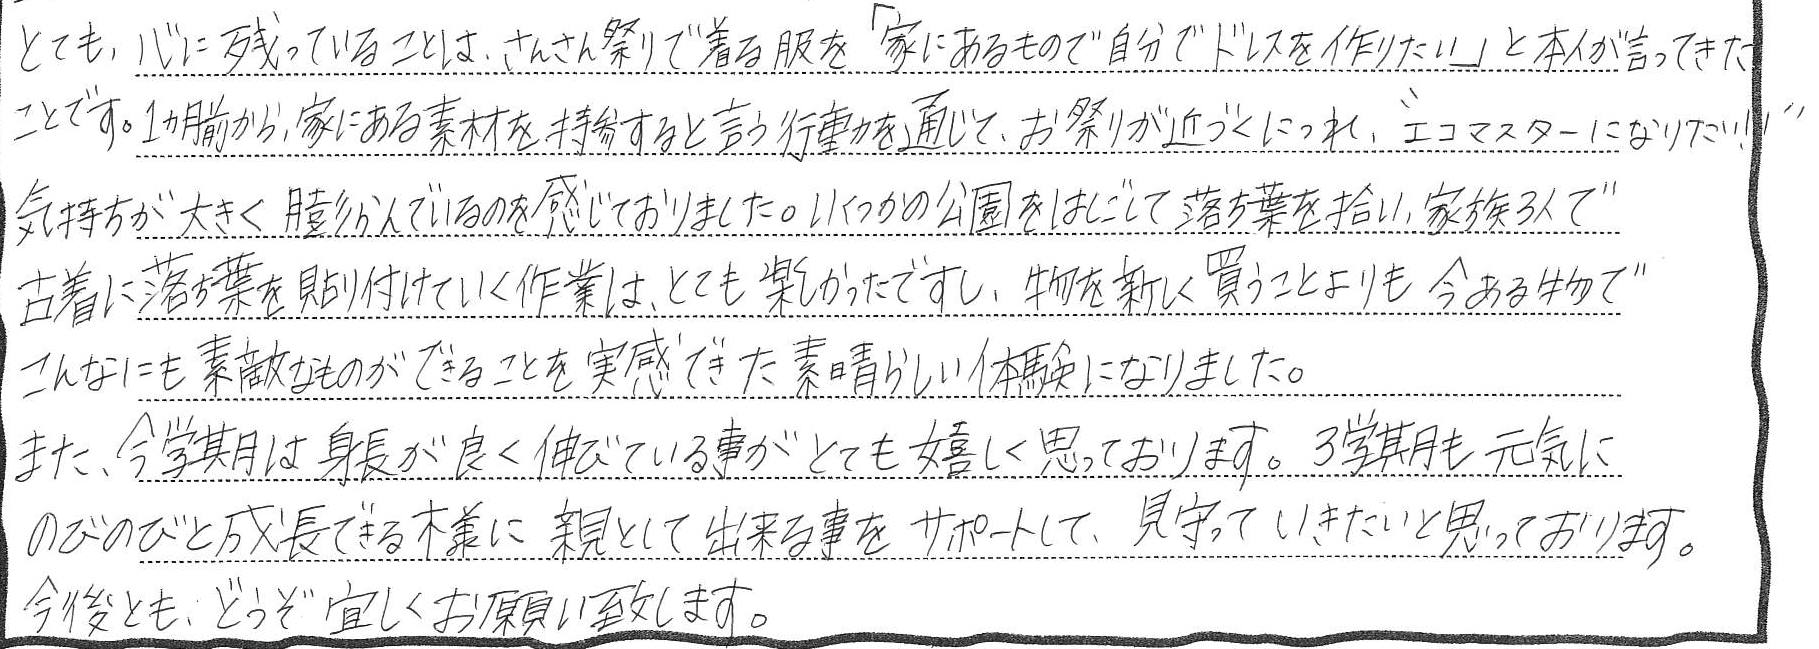 とても、心に残っていることは、さんさん祭りで着る服を「家にあるもので自分でドレスを作りたい」と本人が言ってきた
ことです。1カ月前から、家にある素材を持参すると言う行動を通じて、お祭りが近づくにつれ、"エコマスターになりたい!!"
気持ちが大きく膨らんでいるのを感じておりました。いくつかの公園をはしごして落ち葉を拾い、家族3人で
古着に落ち葉を貼り付けていく作業は、とても楽しかったですし、物を新しく買うことよりも今ある物で
こんなにも素敵なものができることを実感できた素晴らしい体験になりました。
また、今学期は身長が良く伸びている事がとても嬉しく思っております。3学期も元気に
のびのびと成長できる様に親として出来る事をサポートして、見守っていきたいと思っております。
今後とも、どうぞ宜しくお願い致します。